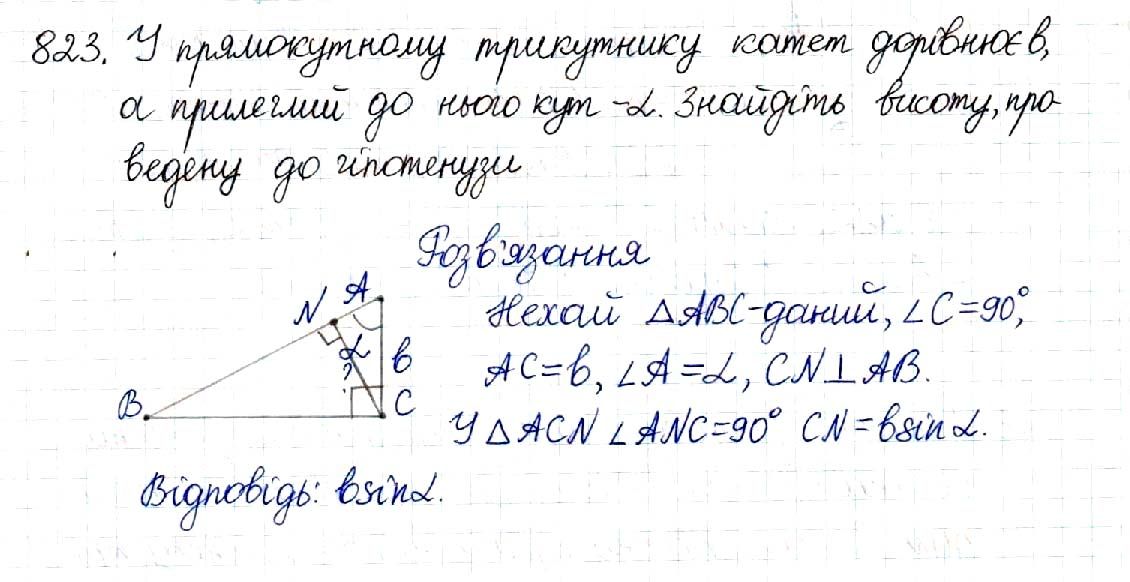 823. У прямокутному трикутнику катет дорівнює в,
а прилеглий до нього кут -α. Знайдіть висоту, про-
ведену до гіпотенузи
Розв'язання
N A
Нехай △ABC-даний, ∠C=90°,
α в
?
AC=в, ∠A=α, CN⊥AB.
B C
У △ACN ∠ANC=90° CN=вsinα.
Відповідь: вsinα.